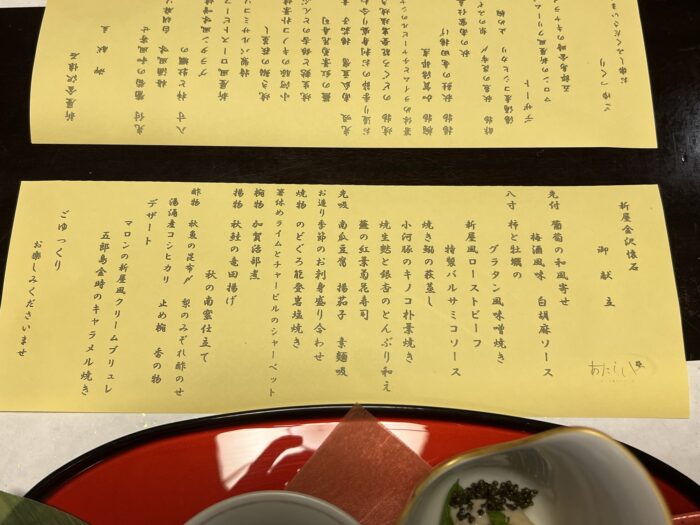 新屋金沢懐石
御献立
先付 葡萄の和風寄せ
梅酒風味 白胡麻ソース
八寸 柿と牡蠣の
グラタン風味噌焼き
新屋風ローストビーフ
特製バルサミコソース
焼き鯛の萩蒸し
小河豚のキノコ朴葉焼き
焼生麩と銀杏のとんぶり和え
蕪の紅葉菊花寿司
先吸 南瓜豆富 揚茄子 素麺吸
お造り季節のお刺身盛り合わせ
焼物 のどぐろ能登藻塩焼き
箸休めライムとチャービルのシャーベット
椀物 加賀治部煮
揚物 秋鮭の竜田揚げ
秋の南蛮仕立て
酢物 秋夏の昆布〆 梨のみぞれ酢のせ
湯涌産コシヒカリ 止め椀 香の物
デザート
マロンの新屋風クリームブリュレ
五郎島金時のキャラメル焼き
ごゆっくり
お楽しみくださいませ